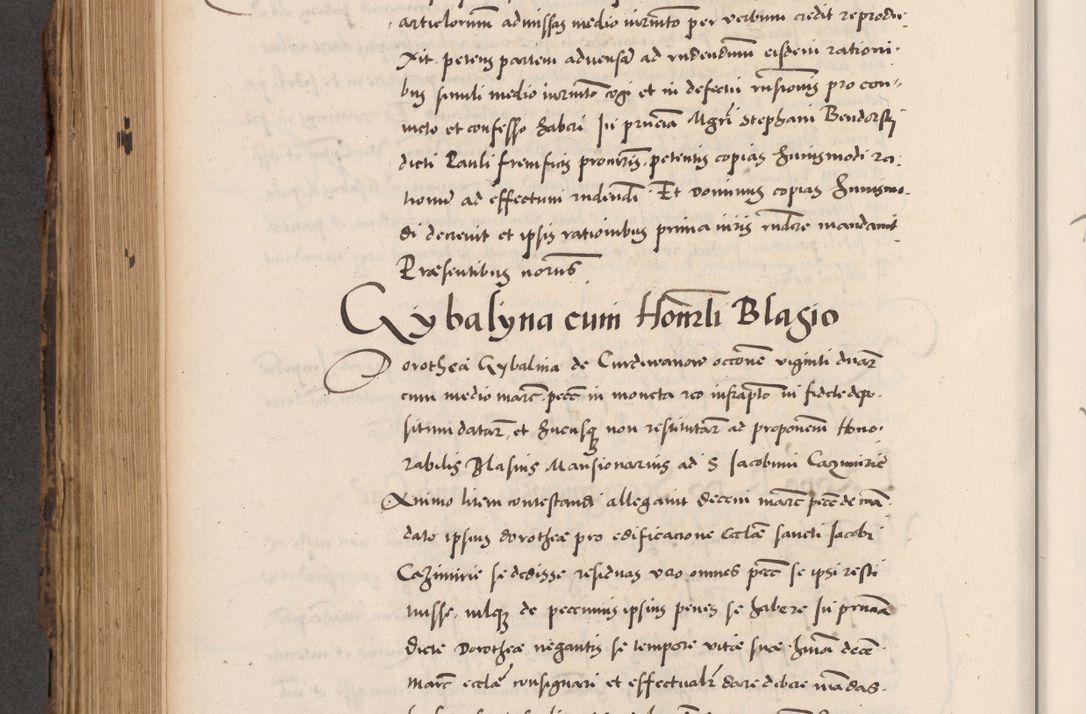 articlorum admissas medio iurmto per verbum credit reprodu-
xit. petens partem aduersã ad rñdendum eisdem rationi-
bus simili medio iurmto cogi et in defectu rñsionis pro con-
uicto et confesso haberi In pñtia Mgri Stephani Bendorsky
dicti Pauli frenificis procuris, petentis copias huiusmodi ra-
tionũ ad effectum rñdendi. Et dominus copias huiusmo-
di decreuit et ipsis rationibus prima iuris rñdere mandauit
Præsentibus norus
Gybalyna cum Honorli Blasio
Dorothea Gybalina de Curdwanow occõne viginti duar
cum medio marc. pecc in moneta reo infrapto in fidele depo-
situm datar, et hucusq non restitutar ad proponem Hono-
rabilis Blasius Mansionarius ad S Jacobum Cazimirie
Animo litem contestandi allegauit decem marc pecc de man-
dato ipsius dorotheæ pro edificacione Eccliæ sancti Jacobi
Cazimirie se dedisse residuas vero omnes pecc se ipsi resti
tuisse, nilq de pecuniis ipsius penes se habere In pñtia
dicte Dorotheæ negantis se tempore vitæ suæ hmõi decẽ
marc eccliæ consignari et effectualr dare debere mandas-